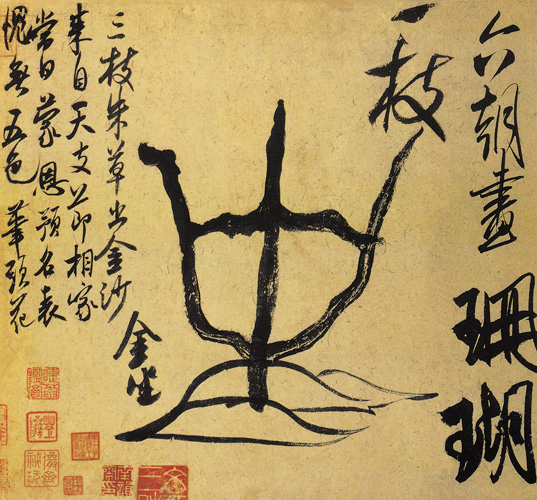 六朝畫 珊瑚
一枝
金坐
三枝朱草出金沙
來自天支節相家
當日蒙恩預名表
愧無五色筆頭花